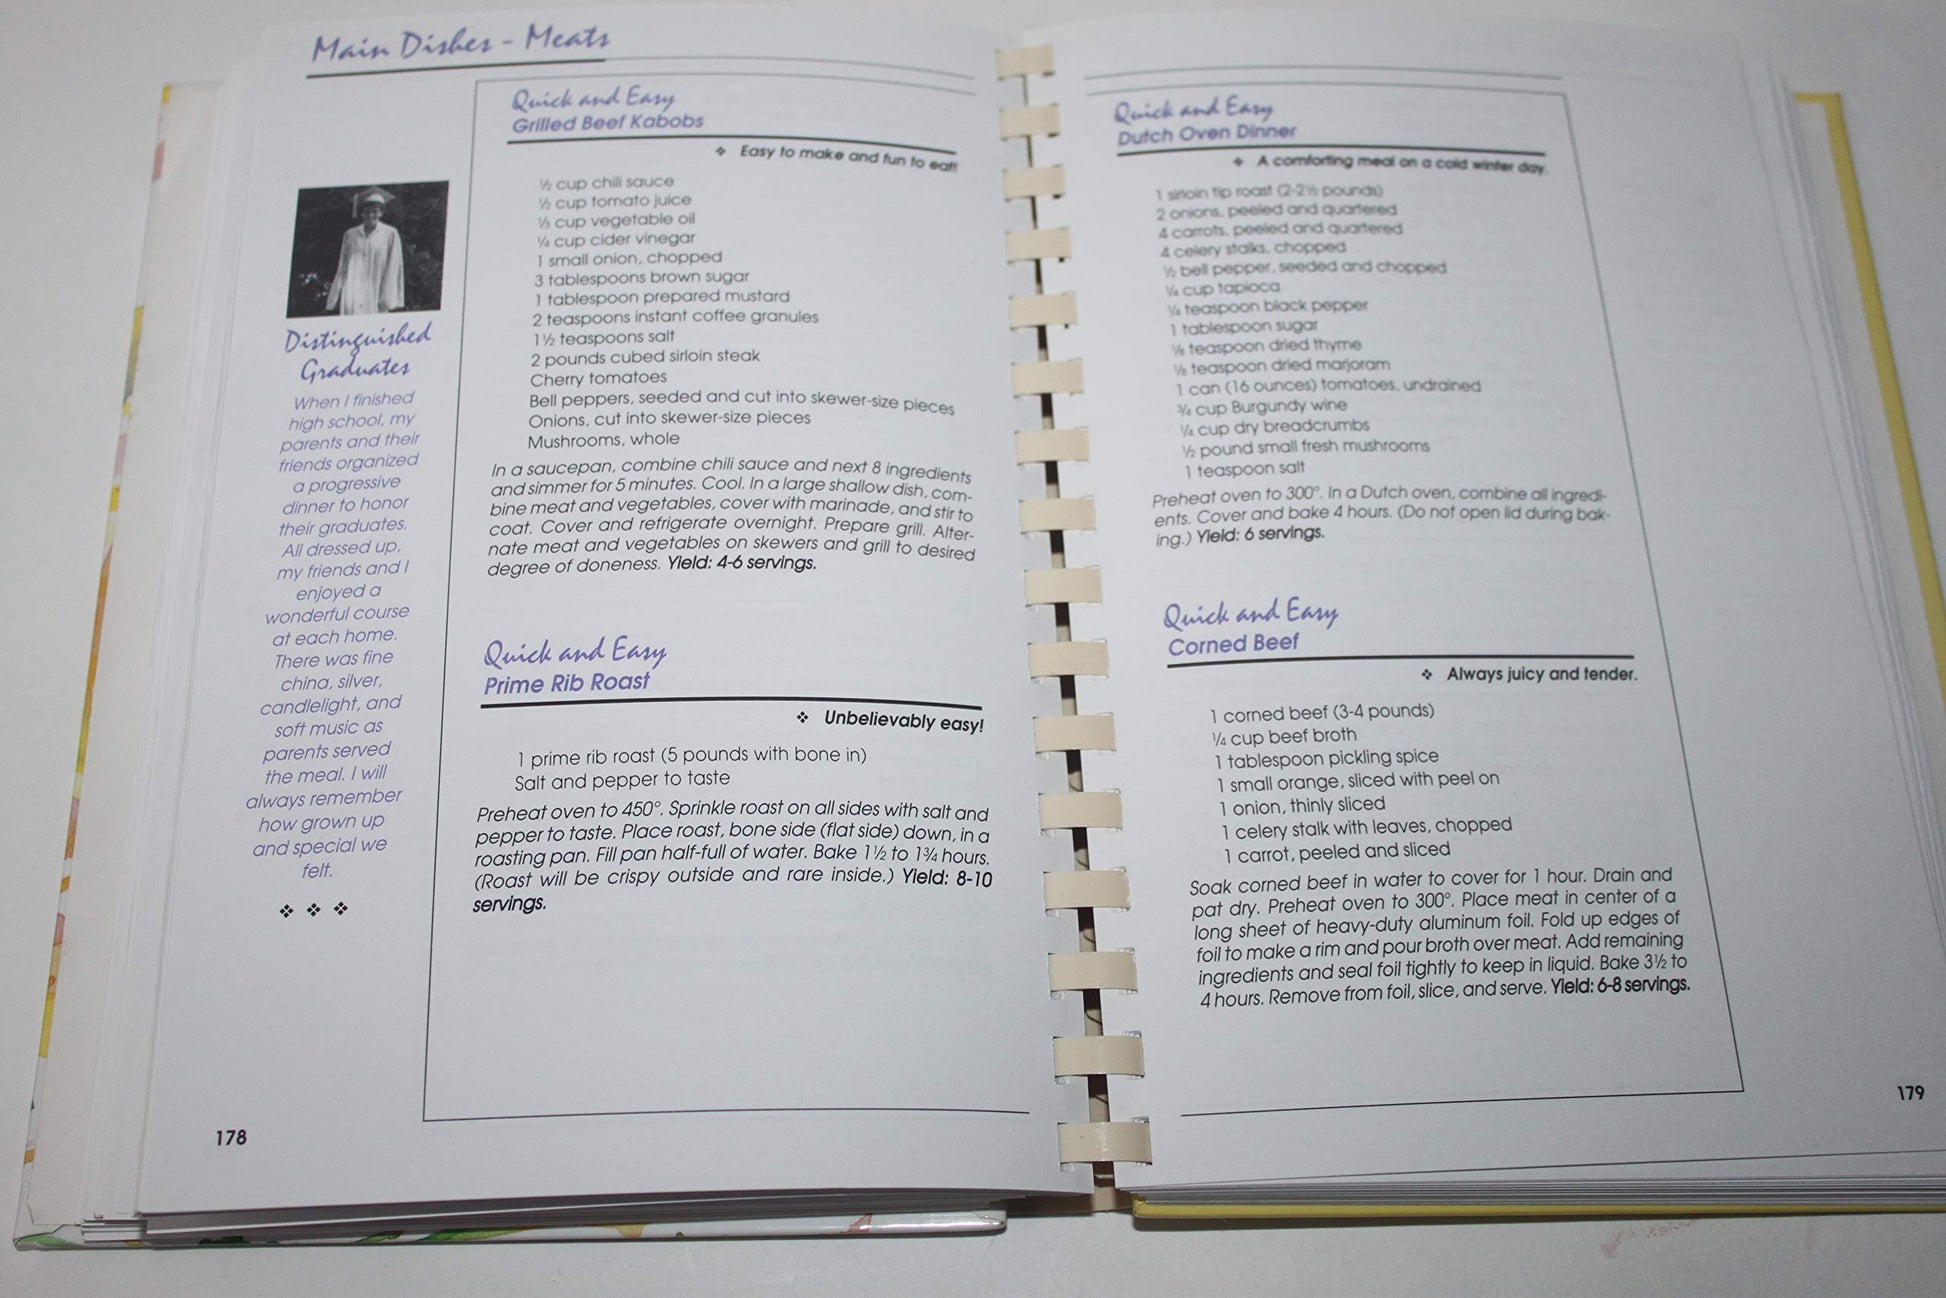 Main Dishes - Meats
Distinguished
Graduates
When I finished
high school, my
parents and their
friends organized
a progressive
dinner to honor
their graduates.
All dressed up,
my friends and I
enjoyed a
wonderful course
at each home.
There was fine
china, silver,
candlelight, and
soft music as
parents served
the meal. I will
always remember
how grown up
and special we
felt.
❖ ❖ ❖
178
Quick and Easy
Grilled Beef Kabobs
❖ Easy to make and fun to eat!
½ cup chili sauce
½ cup tomato juice
⅓ cup vegetable oil
¼ cup cider vinegar
1 small onion, chopped
3 tablespoons brown sugar
1 tablespoon prepared mustard
2 teaspoons instant coffee granules
1½ teaspoons salt
2 pounds cubed sirloin steak
Cherry tomatoes
Bell peppers, seeded and cut into skewer-size pieces
Onions, cut into skewer-size pieces
Mushrooms, whole
In a saucepan, combine chili sauce and next 8 ingredients
and simmer for 5 minutes. Cool. In a large shallow dish, com-
bine meat and vegetables, cover with marinade, and stir to
coat. Cover and refrigerate overnight. Prepare grill. Alter-
nate meat and vegetables on skewers and grill to desired
degree of doneness. Yield: 4-6 servings.
Quick and Easy
Prime Rib Roast
❖ Unbelievably easy!
1 prime rib roast (5 pounds with bone in)
Salt and pepper to taste
Preheat oven to 450°. Sprinkle roast on all sides with salt and
pepper to taste. Place roast, bone side (flat side) down, in a
roasting pan. Fill pan half-full of water. Bake 1½ to 1¾ hours.
(Roast will be crispy outside and rare inside.) Yield: 8-10
servings.
Quick and Easy
Dutch Oven Dinner
❖ A comforting meal on a cold winter day.
1 sirloin tip roast (2-2½ pounds)
2 onions, peeled and quartered
4 carrots, peeled and quartered
4 celery stalks, chopped
½ bell pepper, seeded and chopped
¼ cup tapioca
¼ teaspoon black pepper
1 tablespoon sugar
⅛ teaspoon dried thyme
⅛ teaspoon dried marjoram
1 can (16 ounces) tomatoes, undrained
¾ cup Burgundy wine
¼ cup dry breadcrumbs
½ pound small fresh mushrooms
1 teaspoon salt
Preheat oven to 300°. In a Dutch oven, combine all ingredi-
ents. Cover and bake 4 hours. (Do not open lid during bak-
ing.) Yield: 6 servings.
Quick and Easy
Corned Beef
❖ Always juicy and tender.
1 corned beef (3-4 pounds)
¼ cup beef broth
1 tablespoon pickling spice
1 small orange, sliced with peel on
1 onion, thinly sliced
1 celery stalk with leaves, chopped
1 carrot, peeled and sliced
Soak corned beef in water to cover for 1 hour. Drain and
pat dry. Preheat oven to 300°. Place meat in center of a
long sheet of heavy-duty aluminum foil. Fold up edges of
foil to make a rim and pour broth over meat. Add remaining
ingredients and seal foil tightly to keep in liquid. Bake 3½ to
4 hours. Remove from foil, slice, and serve. Yield: 6-8 servings.
179